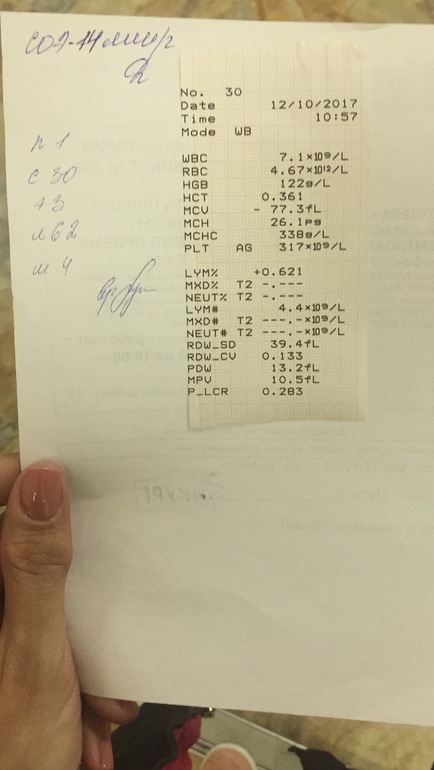 СОЭ-14мм/г
No. 30
Date 12/10/2017
Time 10:57
Mode WB
WBC 7.1×10⁹/L
RBC 4.67×10¹²/L
HGB 122g/L
HCT 0.361
MCV - 77.3fL
MCH 26.1pg
MCHC 338g/L
PLT AG 317×10⁹/L
LYM% +0.621
MXD% T2 -.---
NEUT% T2 -.---
LYM# 4.4×10⁹/L
MXD# T2 ---.-×10⁹/L
NEUT# T2 ---.-×10⁹/L
RDW_SD 39.4fL
RDW_CV 0.133
PDW 13.2fL
MPV 10.5fL
P_LCR 0.283
п 1
с 30
э 3
л 62
м 4